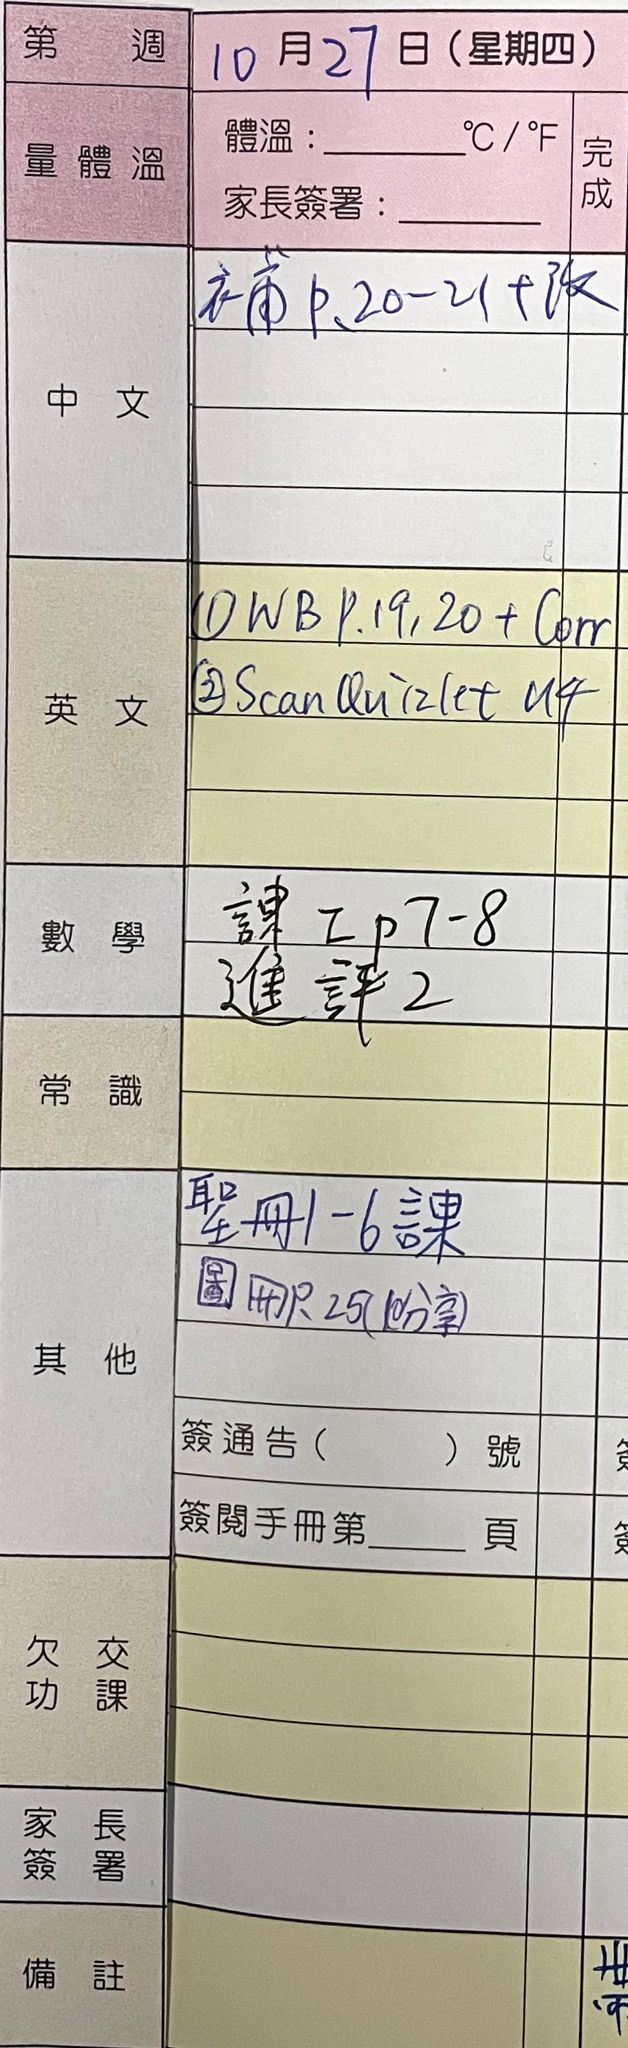 第 週 10月27日(星期四)
量體溫
體溫:______°C/°F
家長簽署:______
完成
中文
補 p.20-21+改
英文
① WB P.19,20 + Corr
② Scan Quizlet U4
數學
課工p7-8
進評2
常識
其他
聖冊1-6課
圖冊P.25(分享)
簽通告( )號
簽閱手冊第____頁
欠交功課
家長簽署
備註